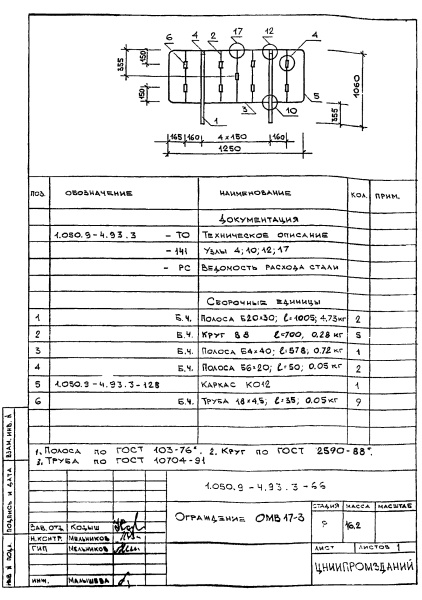 17
12
6 4 2 4
150
355
150
1060
355
5
3
10
1
165 160 4×150 160
1250
ПОЗ. ОБОЗНАЧЕНИЕ НАИМЕНОВАНИЕ КОЛ. ПРИМ.
ДОКУМЕНТАЦИЯ
1.050.9-4.93.3 - ТО ТЕХНИЧЕСКОЕ ОПИСАНИЕ
- 141 УЗЛЫ 4; 10; 12; 17
- РС ВЕДОМОСТЬ РАСХОДА СТАЛИ
СБОРОЧНЫЕ ЕДИНИЦЫ
1 Б.Ч. ПОЛОСА Б20×30; ℓ=1005; 4,73кг 2
2 Б.Ч. КРУГ В8 ℓ=700, 0,28 кг 5
3 Б.Ч. ПОЛОСА Б4×40; ℓ=578; 0.72 кг 1
4 Б.Ч. ПОЛОСА Б6×20; ℓ=50; 0.05 кг 2
5 1.050.9-4.93.3-128 КАРКАС КО12 1
6 Б.Ч. ТРУБА 18×4,5; ℓ=35; 0,05кг 9
1. ПОЛОСА ПО ГОСТ 103-76*. 2. КРУГ ПО ГОСТ 2590-88*.
3. ТРУБА ПО ГОСТ 10704-91
1.050.9-4.93.3-66
ОГРАЖДЕНИЕ ОМВ 17-3
СТАДИЯ МАССА МАСШТАБ
Р 16.2
ЛИСТ ЛИСТОВ 1
ЦНИИПРОМЗДАНИЙ
ЗАВ. ОТД. КОДЫШ
Н.КОНТР. МЕЛЬНИКОВ
ГИП МЕЛЬНИКОВ
ИНЖ. МАЛЫШЕВА
ВЗАМ. ИНВ. №
ПОДПИСЬ И ДАТА
ИНВ № ПОДЛ.